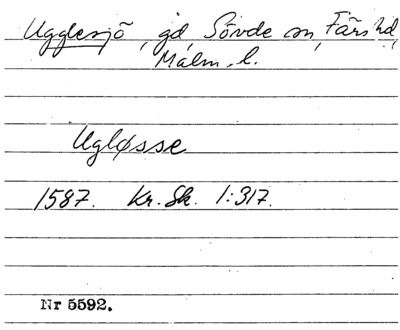 Ugglesjö, gd, Sövde sn, Färs hd,
Malm. l.
Ugløsse
1587. Kr. Sk. 1:317.
Nr 5592.